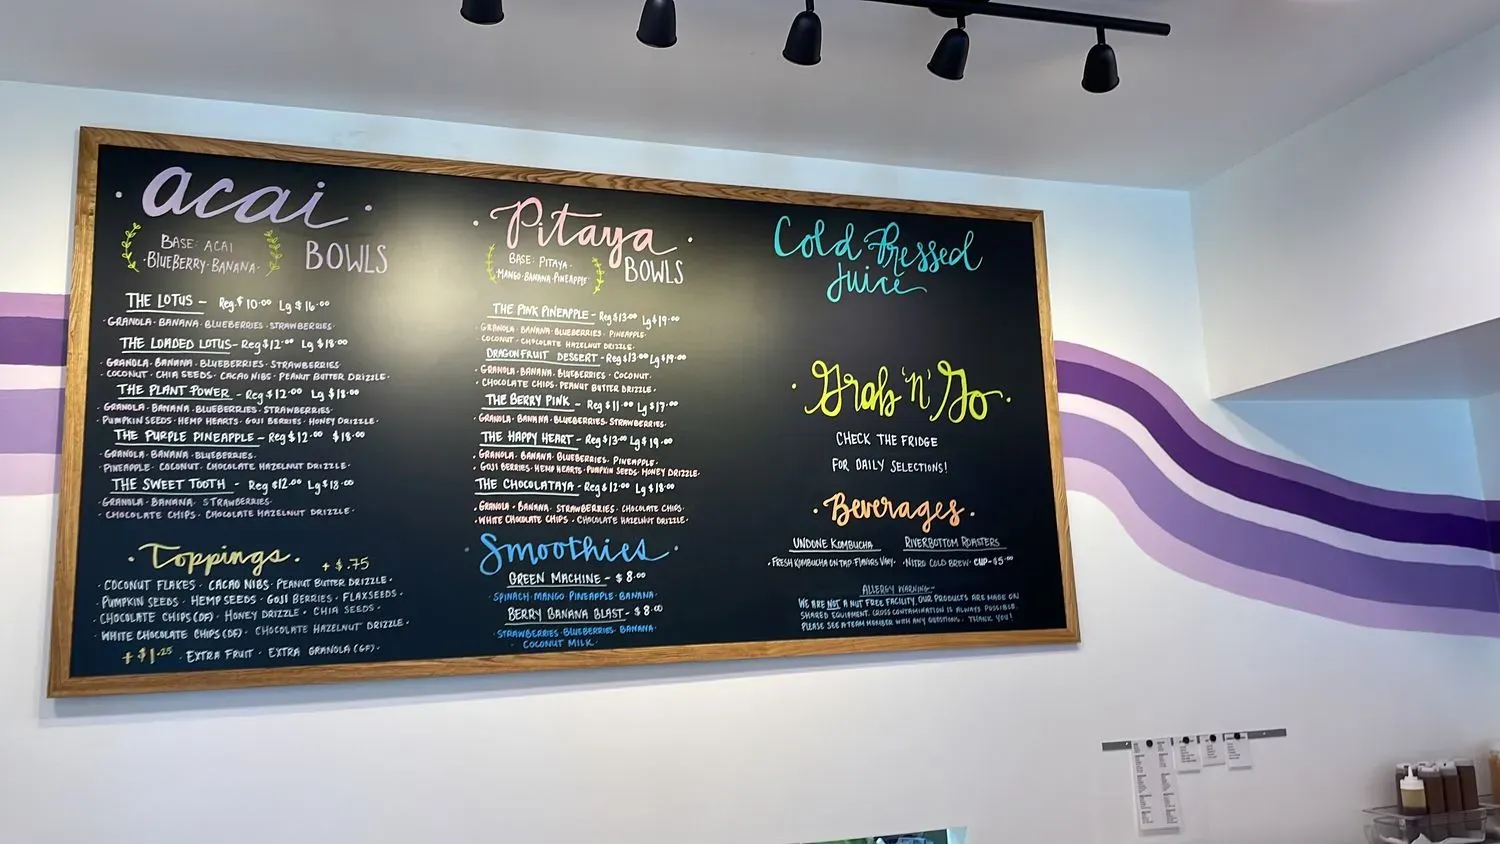 acai
BASE: ACAI
·BLUEBERRY·BANANA·
BOWLS
THE LOTUS – Reg.$10.00 Lg $16.00
·GRANOLA·BANANA·BLUEBERRIES·STRAWBERRIES·
THE LOADED LOTUS – Reg $12.00 Lg $18.00
·GRANOLA·BANANA·BLUEBERRIES·STRAWBERRIES
·COCONUT·CHIA SEEDS·CACAO NIBS·PEANUT BUTTER DRIZZLE·
THE PLANT POWER – Reg $12.00 Lg $18.00
·GRANOLA·BANANA·BLUEBERRIES·STRAWBERRIES·
·PUMPKIN SEEDS·HEMP HEARTS·GOJI BERRIES·HONEY DRIZZLE·
THE PURPLE PINEAPPLE – Reg $12.00 $18.00
·GRANOLA·BANANA·BLUEBERRIES·
·PINEAPPLE·COCONUT·CHOCOLATE HAZELNUT DRIZZLE·
THE SWEET TOOTH – Reg $12.00 Lg $18.00
·GRANOLA·BANANA·STRAWBERRIES·
·CHOCOLATE CHIPS·CHOCOLATE HAZELNUT DRIZZLE·
·Toppings· +$.75
·COCONUT FLAKES·CACAO NIBS·PEANUT BUTTER DRIZZLE·
·PUMPKIN SEEDS·HEMP SEEDS·GOJI BERRIES·FLAXSEEDS·
·CHOCOLATE CHIPS (DF)·HONEY DRIZZLE·CHIA SEEDS·
·WHITE CHOCOLATE CHIPS (DF)·CHOCOLATE HAZELNUT DRIZZLE·
+$1.25 ·EXTRA FRUIT·EXTRA GRANOLA (GF)·
Pitaya
BASE: PITAYA·
·MANGO·BANANA·PINEAPPLE·
BOWLS
THE PINK PINEAPPLE – Reg $13.00 Lg $19.00
·GRANOLA·BANANA·BLUEBERRIES·PINEAPPLE·
·COCONUT·CHOCOLATE HAZELNUT DRIZZLE·
DRAGONFRUIT DESSERT – Reg $13.00 Lg $19.00
·GRANOLA·BANANA·BLUEBERRIES·COCONUT·
·CHOCOLATE CHIPS·PEANUT BUTTER DRIZZLE·
THE BERRY PINK – Reg $11.00 Lg $17.00
·GRANOLA·BANANA·BLUEBERRIES·STRAWBERRIES·
THE HAPPY HEART – Reg $13.00 Lg $19.00
·GRANOLA·BANANA·BLUEBERRIES·PINEAPPLE·
·GOJI BERRIES·HEMP HEARTS·PUMPKIN SEEDS·HONEY DRIZZLE·
THE CHOCOLATAYA – Reg $12.00 Lg $18.00
·GRANOLA·BANANA·STRAWBERRIES·CHOCOLATE CHIPS·
·WHITE CHOCOLATE CHIPS·CHOCOLATE HAZELNUT DRIZZLE·
·Smoothies·
GREEN MACHINE – $8.00
SPINACH·MANGO·PINEAPPLE·BANANA·
BERRY BANANA BLAST – $8.00
·STRAWBERRIES·BLUEBERRIES·BANANA·
COCONUT MILK·
Cold Pressed
Juice
·Grab 'n' Go·
CHECK THE FRIDGE
FOR DAILY SELECTIONS!
·Beverages·
UNDONE KOMBUCHA
·FRESH KOMBUCHA ON TAP·FLAVORS VARY·
RIVERBOTTOM ROASTERS
·NITRO COLD BREW·CUP–$5.00
ALLERGY WARNING:
WE ARE NOT A NUT FREE FACILITY. OUR PRODUCTS ARE MADE ON
SHARED EQUIPMENT. CROSS CONTAMINATION IS ALWAYS POSSIBLE.
PLEASE SEE A TEAM MEMBER WITH ANY QUESTIONS. THANK YOU!